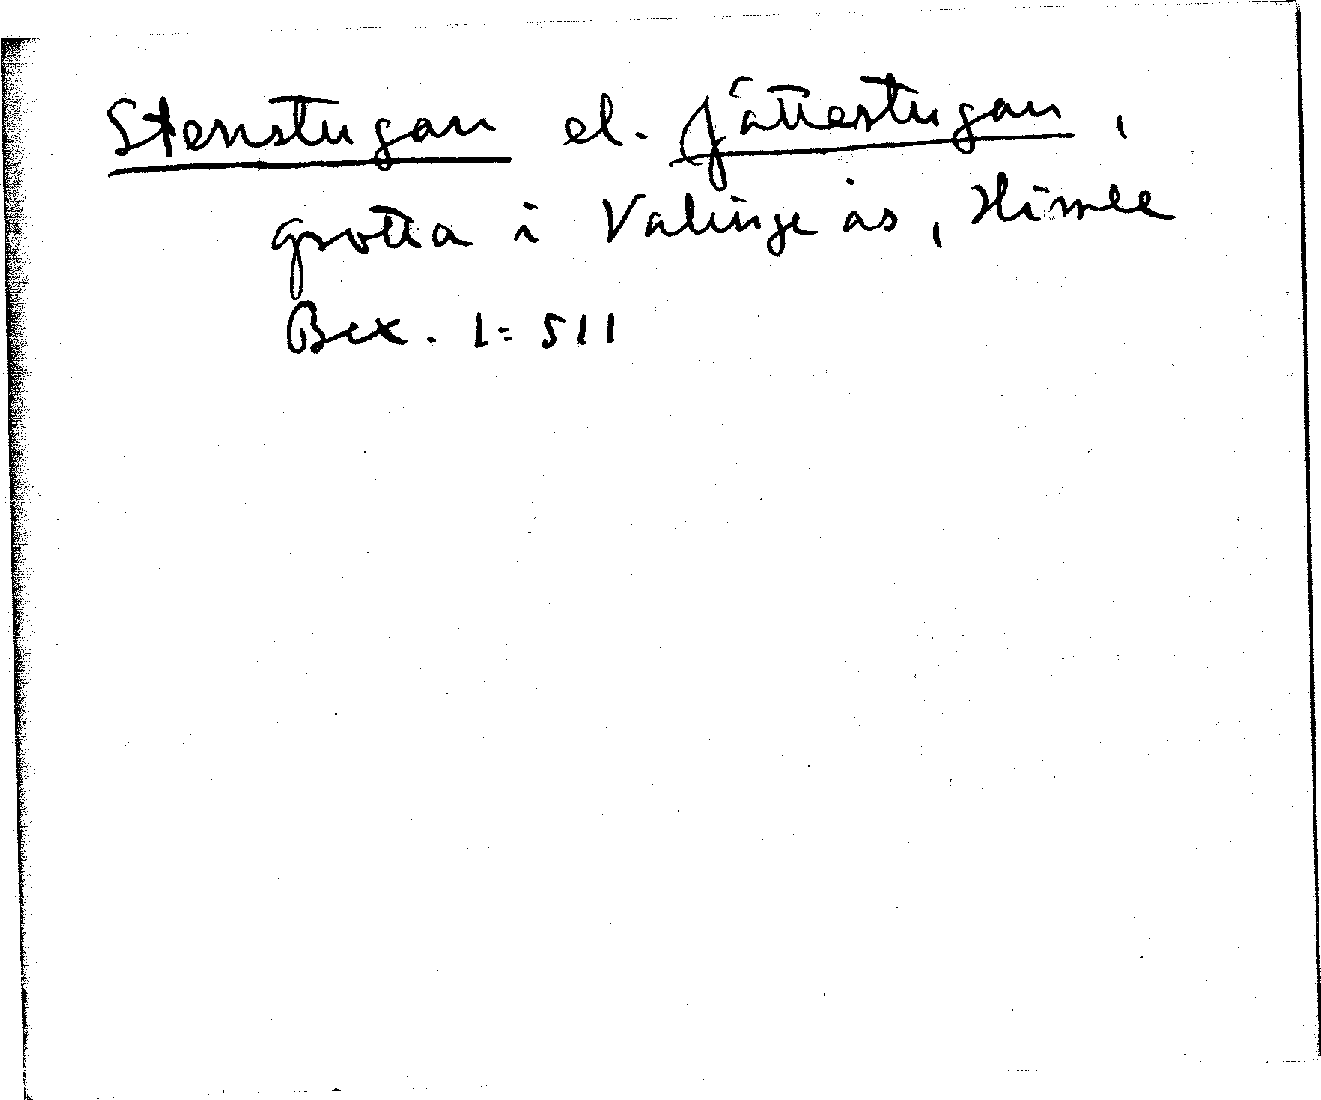 Stenstugan el. Jättestugan,
grotta i Valinge ås, Himle
Bex. 1:511